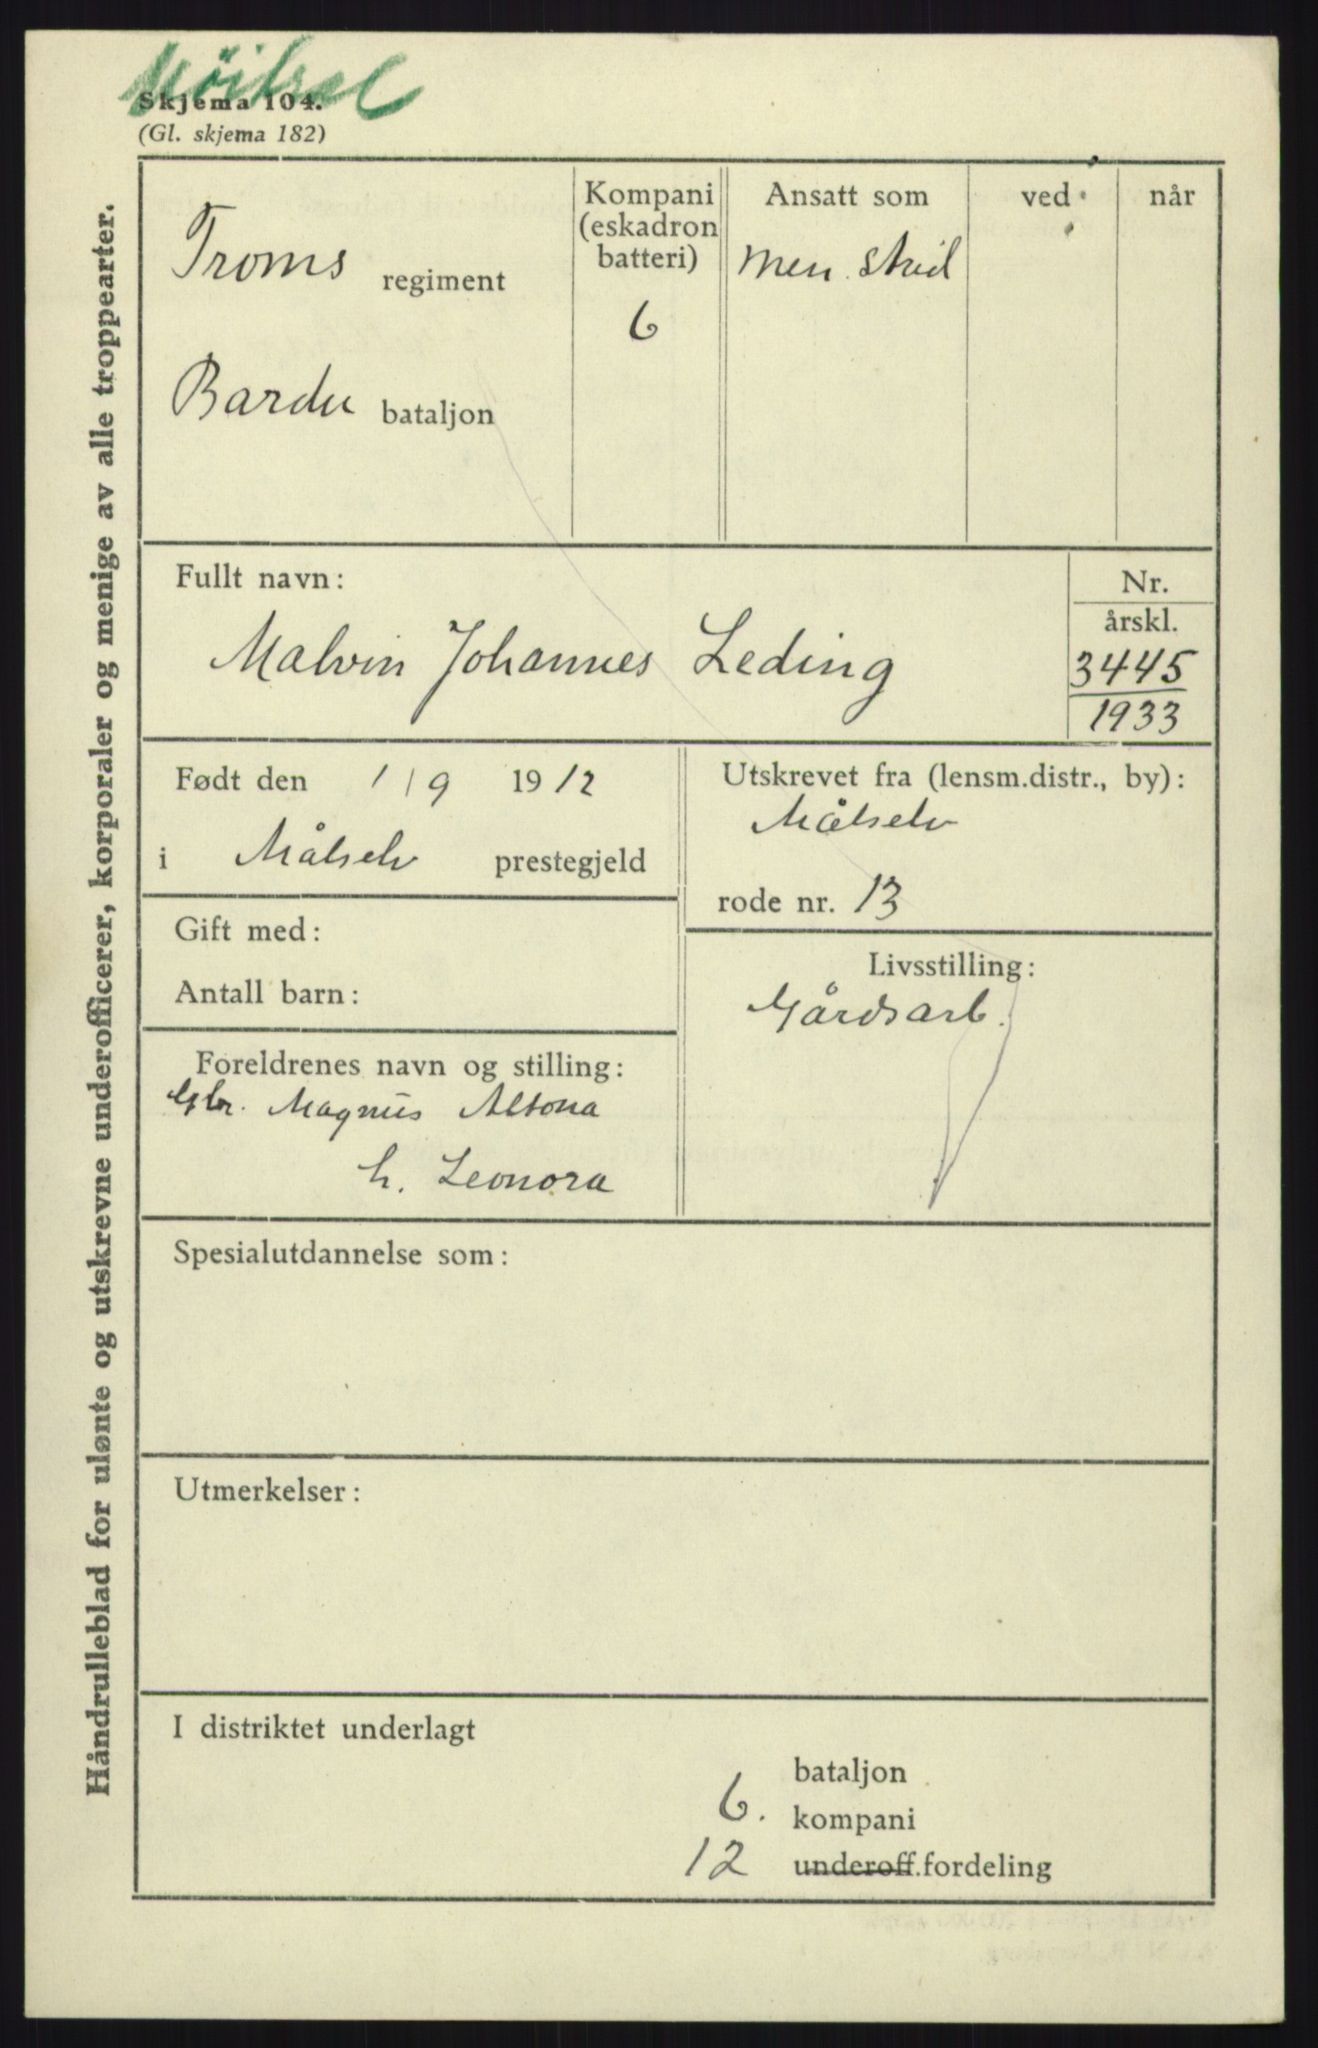 Skjema 104.
(Gl. skjema 182)
Håndrulleblad for ulønte og utskrevne underofficerer, korporaler og menige av alle troppearter.
Troms regiment
Bardu bataljon
Kompani
(eskadron
batteri)
6
Ansatt som
Men. strid
ved
når
Fullt navn:
Malvin Johannes Leding
Nr.
årskl.
3445
1933
Født den 1/9 1912
i Målselv prestegjeld
Utskrevet fra (lensm.distr., by):
Målselv
rode nr. 13
Gift med:
Antall barn:
Livsstilling:
Gårdsarb.
Foreldrenes navn og stilling:
Gbr. Magnus Altona
h. Leonora
Spesialutdannelse som:
Utmerkelser:
I distriktet underlagt
bataljon
6. kompani
12 underoff.fordeling